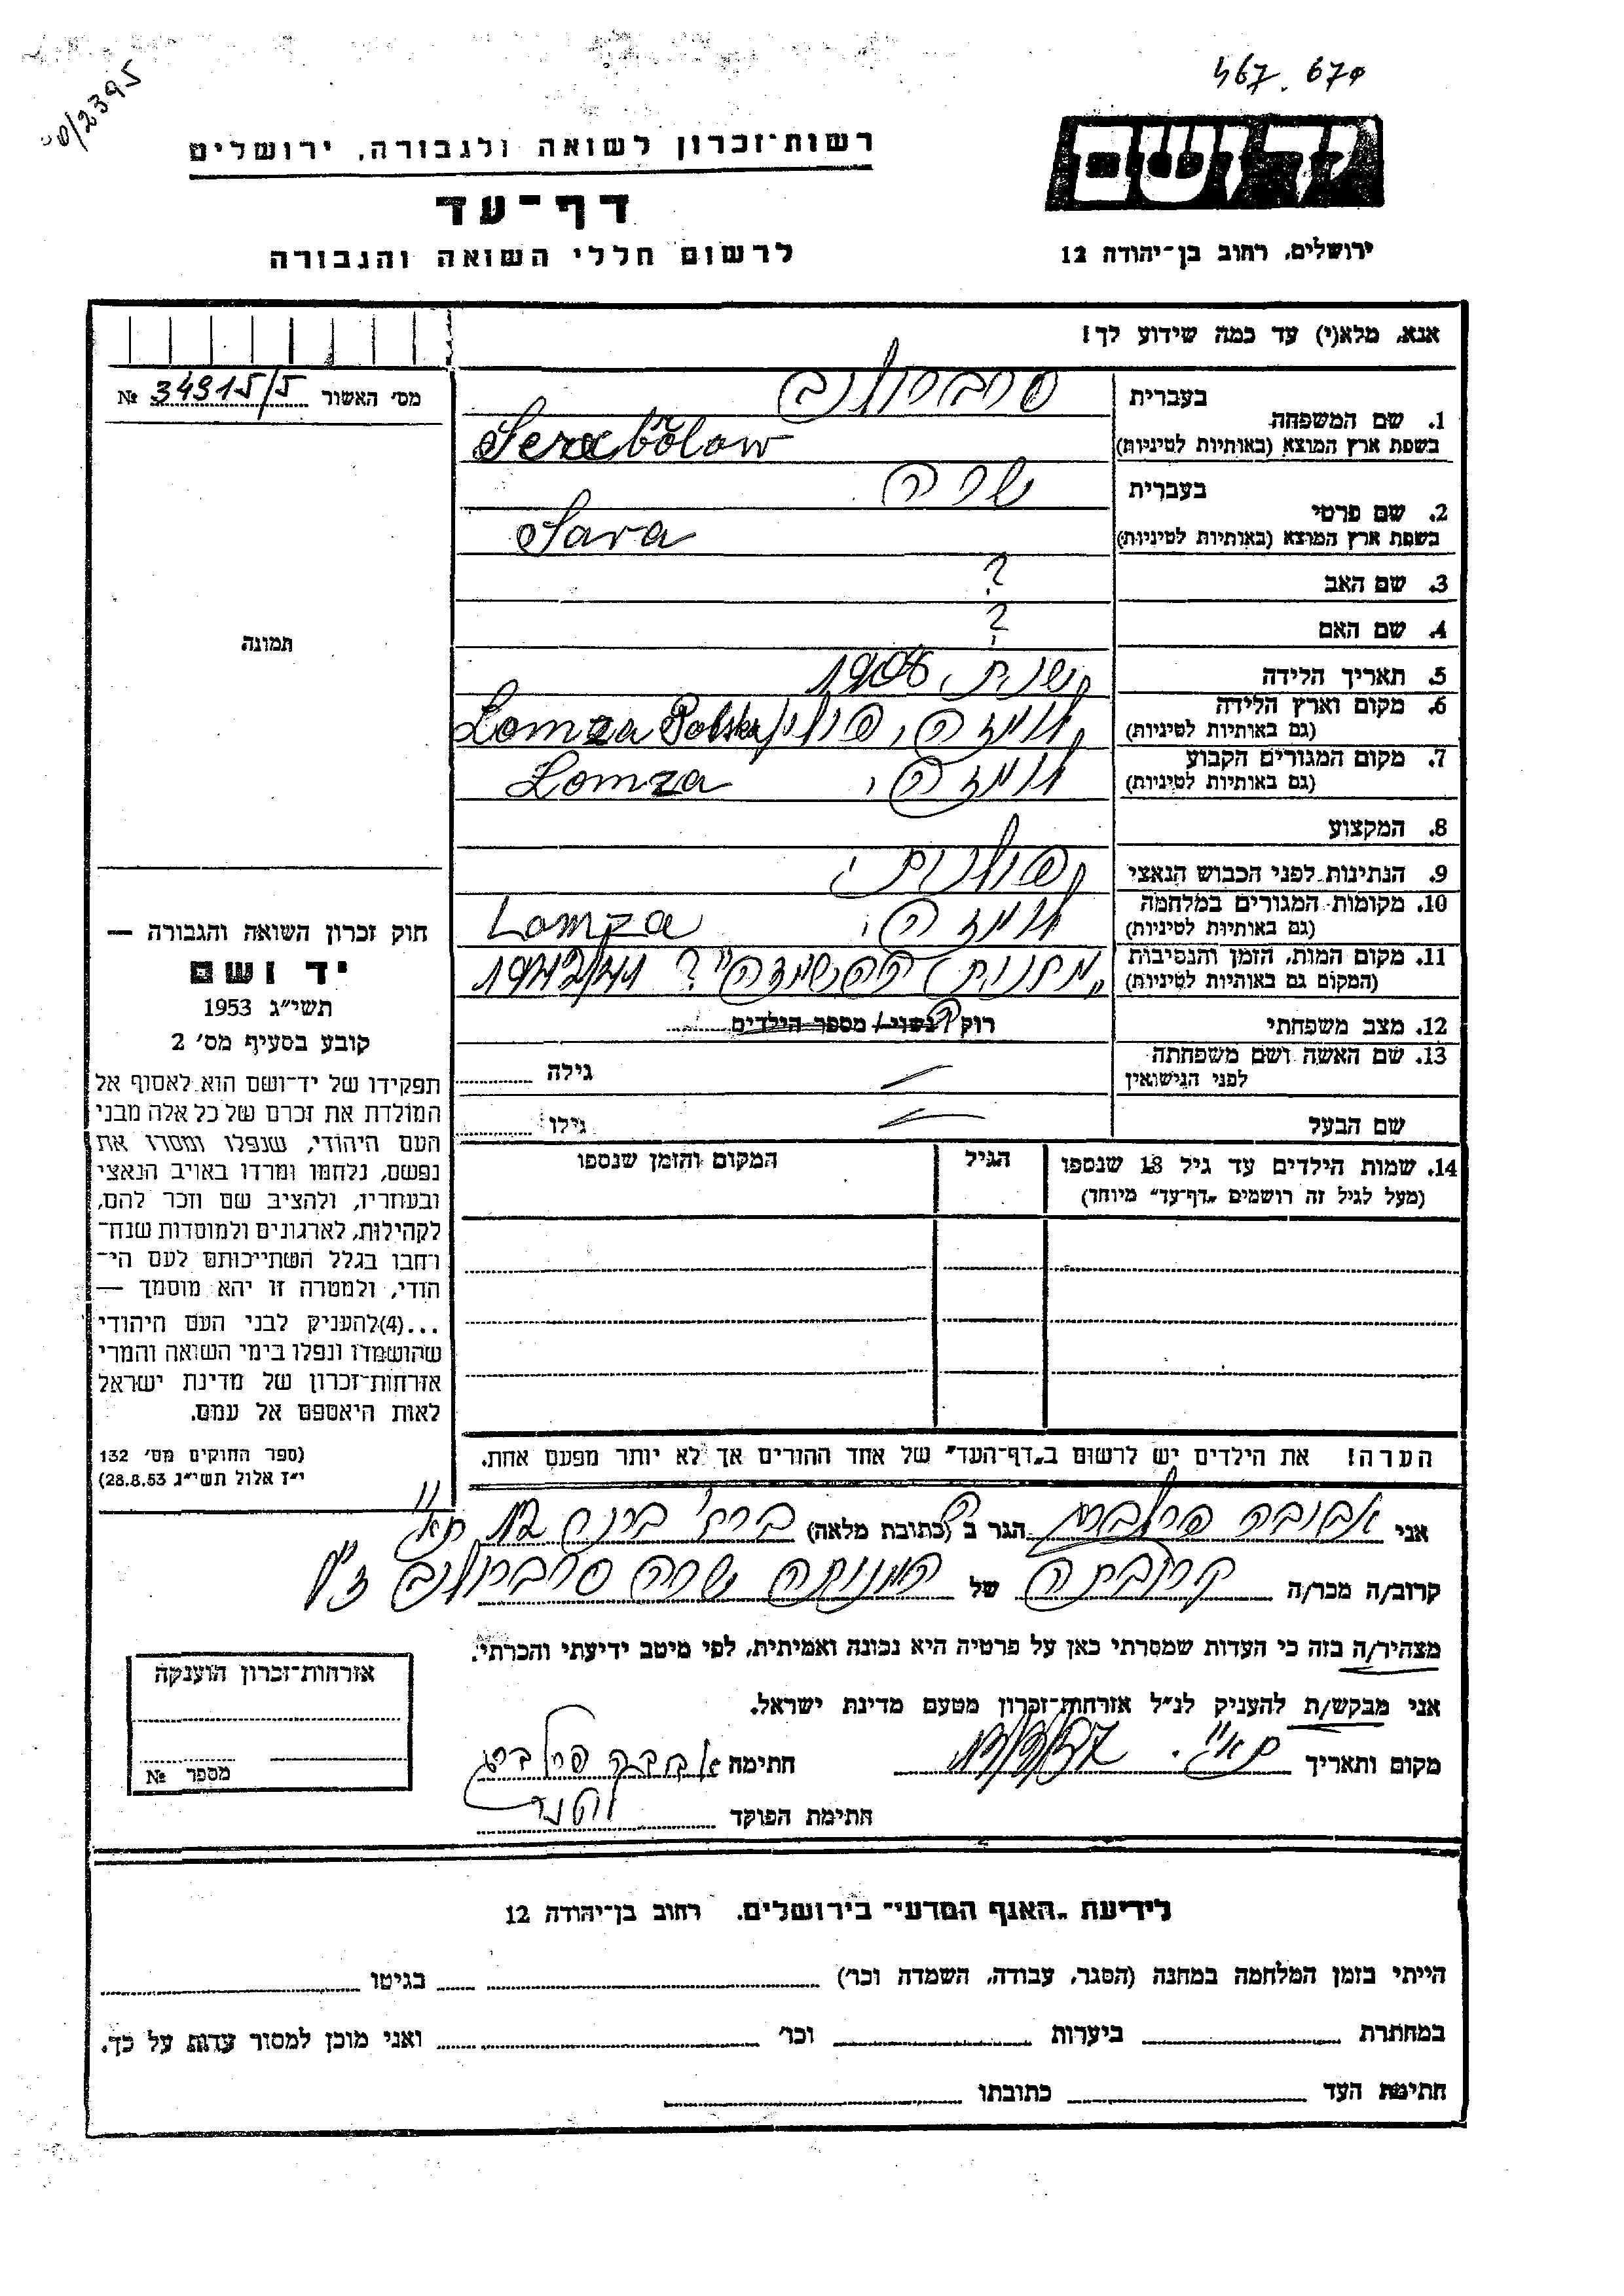 467. 670
רשות־זכרון לשואה ולגבורה, ירושלים
יד ושם
דף־עד
לרשום חללי השואה והגבורה
ירושלים, רחוב בן־יהודה 12
אנא, מלא(י) עד כמה שידוע לך!
מס׳ האשור № 34915/5
1. שם המשפחה
בעברית
בשפת ארץ המוצא (באותיות לטיניות)
Serabőlow
2. שם פרטי
בעברית שרה
בשפת ארץ המוצא (באותיות לטיניות) Sara
3. שם האב ?
4. שם האם ?
5. תאריך הלידה שנת
6. מקום וארץ הלידה (גם באותיות לטיניות) לומזה, פולין Lomza Polska
7. מקום המגורים הקבוע (גם באותיות לטיניות) לומזה, Lomza
8. המקצוע
9. הנתינות לפני הכבוש הנאצי פולנית
10. מקומות המגורים במלחמה (גם באותיות לטיניות) לומזה, Lomza
11. מקום המות, הזמן והנסיבות (המקום גם באותיות לטיניות) "מחנות השמדה"? 1942/41
12. מצב משפחתי רוקה/נשוי/ מספר הילדים
13. שם האשה ושם משפחתה לפני הנישואין — גילה
שם הבעל — גילו
14. שמות הילדים עד גיל 18 שנספו (מעל לגיל זה רושמים "דף־עד" מיוחד)
הגיל
המקום והזמן שנספו
תמונה
חוק זכרון השואה והגבורה —
יד ושם
תשי״ג 1953
קובע בסעיף מס׳ 2
תפקידו של יד־ושם הוא לאסוף אל
המולדת את זכרם של כל אלה מבני
העם היהודי, שנפלו ומסרו את
נפשם, נלחמו ומרדו באויב הנאצי
ובעוזריו, ולהציב שם וזכר להם,
לקהילות, לארגונים ולמוסדות שנח־
רבו בגלל השתייכותם לעם הי־
הודי, ולמטרה זו יהא מוסמך —
...(4)להעניק לבני העם היהודי
שהושמדו ונפלו בימי השואה והמרי
אזרחות־זכרון של מדינת ישראל
לאות היאספם אל עמם.
(ספר החוקים מס׳ 132
י״ז אלול תשי״ג 28.8.53)
הערה! את הילדים יש לרשום ב"דף־העד" של אחד ההורים אך לא יותר מפעם אחת.
אני הגר ב (כתובת מלאה)
קרוב/ה מכר/ה קרובתה של המנוחה שרה ז״ל
מצהיר/ה בזה כי העדות שמסרתי כאן על פרטיה היא נכונה ואמיתית, לפי מיטב ידיעתי והכרתי.
אני מבקש/ת להעניק לנ״ל אזרחות־זכרון מטעם מדינת ישראל.
מקום ותאריך חתימה
חתימת הפוקד
אזרחות־זכרון הוענקה
מספר №
לידיעת "האגף המדעי" בירושלים, רחוב בן־יהודה 12
הייתי בזמן המלחמה במחנה (הסגר, עבודה, השמדה וכו׳) בגיטו
במחתרת ביערות וכו׳ ואני מוכן למסור עדות על כך.
חתימת העד כתובתו